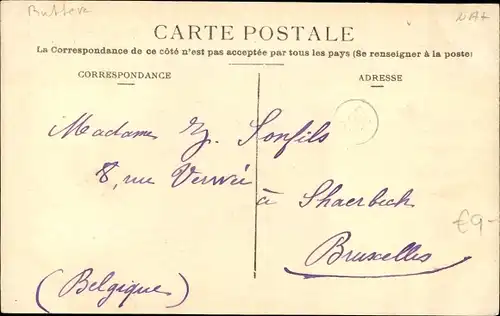 Buttere
CARTE POSTALE
La Correspondance de ce côté n'est pas acceptée par tous les pays (Se renseigner à la poste)
CORRESPONDANCE
ADRESSE
Madame Sonfils
8, rue Verwée
à Shaerbeck
€9-
Bruxelles
(Belgique)